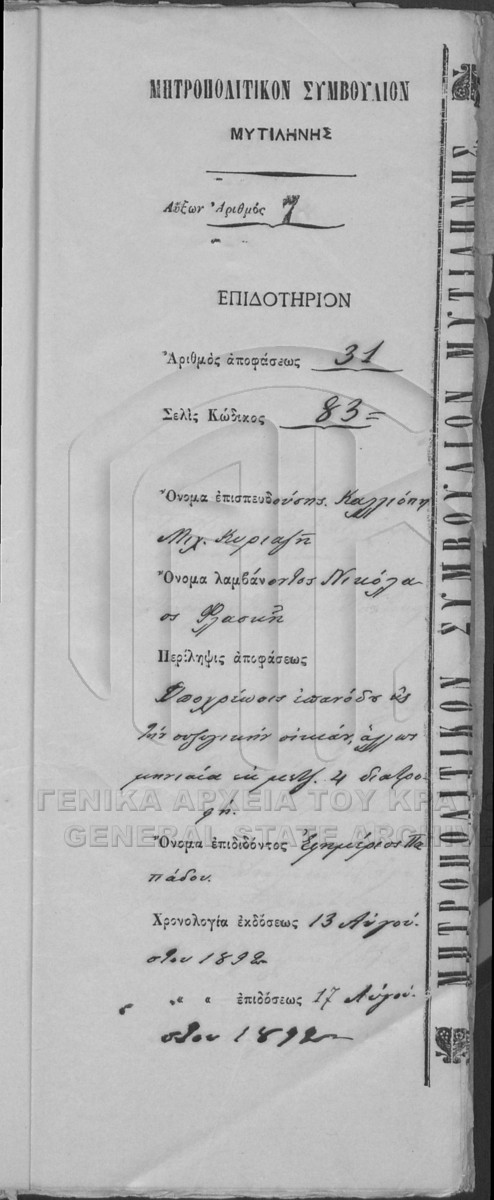 ΜΗΤΡΟΠΟΛΙΤΙΚΟΝ ΣΥΜΒΟΥΛΙΟΝ
ΜΥΤΙΛΗΝΗΣ
Αὔξων Ἀριθμὸς 7
ΕΠΙΔΟΤΗΡΙΟΝ
Ἀριθμὸς ἀποφάσεως 31
Σελὶς Κώδικος 83=
Ὄνομα ἐπισπευδούσης Καλλιόπη
Μιχ. Κυριαζῆ
Ὄνομα λαμβάνοντος Νικόλα-
ος Φλασκῆ
Περίληψις ἀποφάσεως
Ὑποχρέωσις ἐπανόδου εἰς
τὴν συζυγικὴν οἰκίαν, ἄλλως
μηνιαία ἐκ μετζ. 4 διατρο-
φή.
Ὄνομα ἐπιδιδόντος Ἐφημέριος Πα
πάδου.
Χρονολογία ἐκδόσεως 13 Αὐγού-
στου 1892
" " ἐπιδόσεως 17 Αὐγού-
στου 1892
ΜΗΤΡΟΠΟΛΙΤΙΚΟΝ ΣΥΜΒΟΥΛΙΟΝ ΜΥΤΙΛΗΝΗΣ
ΓΕΝΙΚΑ ΑΡΧΕΙΑ ΤΟΥ ΚΡΑΤ
GENERAL STATE ARCHIVE